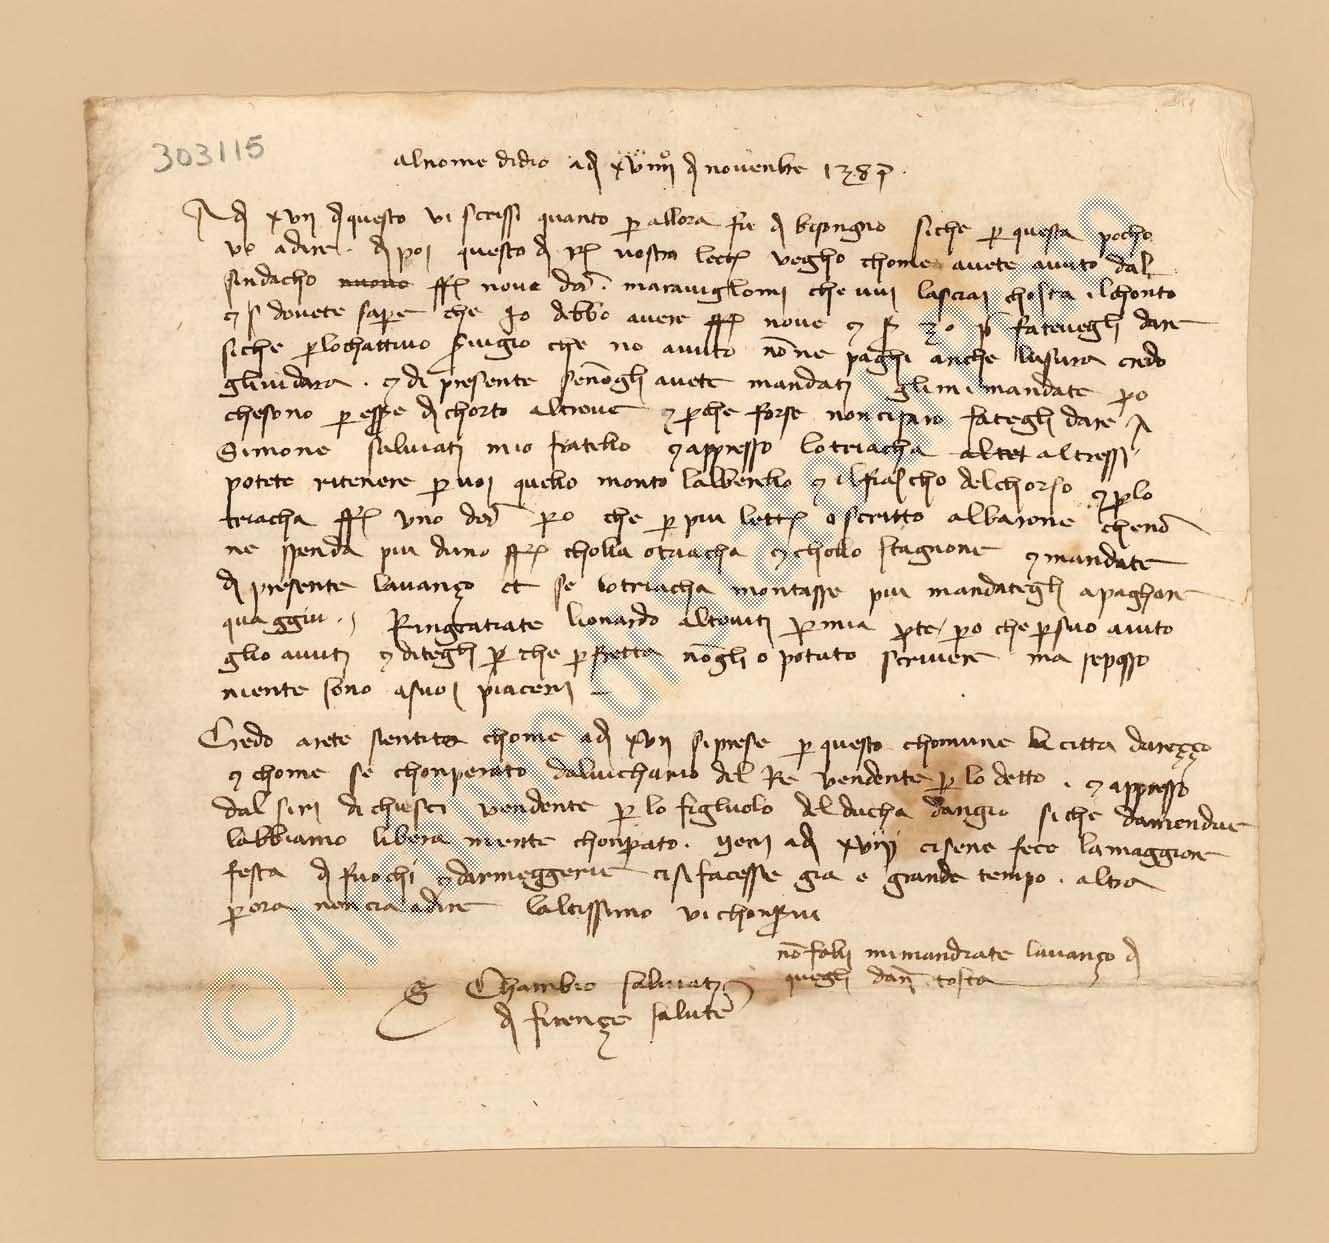 303115
al nome didio adj xviiij dj novenbre 138
Adj xvij djquesto vi scrissi quanto p allora fu dj bisongnio siche p questa pocho
vo adire. dj poi questo dj r nostra lett vegho chome avete avuto dal
sindacho nuono ff nove dor. maraviglomi che nui lasciai chosta ilchonto
e s dovete sapere che Jo debbo avere ff nove e s fatevegli dare
siche plochattivo svigio che no avuto none paghi anche lusura credo
glividara. e di presente senogli avete mandati glimi mandate po
chesono p essere dj chorto altrove e pche forse noncisaro fategli dare a
Simone salviati mio fratello e appresso lotriacha altet altressi
potete ritenere p voi quello monto lalberello e ilfiascho delchorso e plo
triacha ff uno dor po che p piu lett o scritto albarone cheno
ne spenda piu duno ff cholla otriacha e chollo stagnone e mandate
dj presente lavanço et se lotriacha montasse piu mandategli apaghare
quaggiu. Ringratiate lionardo altoviti p mia pte, po che psuo aiuto
glio avuti e ditegli p che p fretta nogli o potuto scrivere ma seposso
niente sono asuoi piaceri
Credo arete sentito chome adj xvij siprese p questo chomune la citta dareçço
e chome se chonperato dalvichario del Re vendente p lo detto. e appresso
dal siri dichusci vendente p lo figluolo del ducha dangio siche damendue
labbiamo libera mente chonpato. ijeri adj xviij cisene fece lamaggiore
festa dj fuochi e darmeggerie cisifacesse gia e grande tempo. altra
p ora nencia adire laltissimo vi chonsrvi
no falli mimandiate lavanço dj
quegli dan tosta
Chambio salviati
dj firençe salute
© Archivio di Stato di